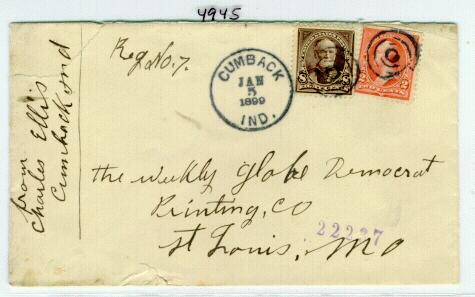 4945
Reg No. 7.
CUMBACK
JAN
5
1899
IND.
2
from
Charles Ellis
Cumback Ind
The Weekly Globe Democrat
Printing, Co
St Louis, Mo
22227